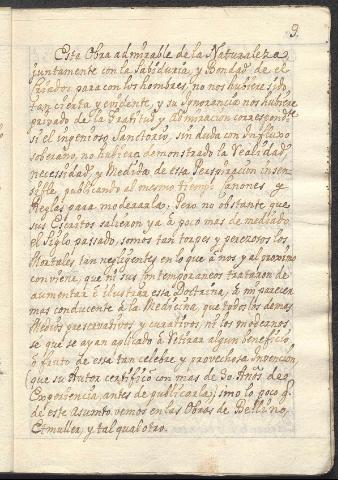 9.
Esta Obra admirable de la Naturaleza
juntamente con la Sabiduria, y Bondad de el
Criador para con los hombres, no nos hubiere sido
tan cierta y evidente, y su Ignorancia nos hubiere
privado de la Gratitud y Admiracion correspondte
si el ingenioso Sanctorio, sin duda con Influxo
soberano, no hubiera demonstrado la Realidad,
necessidad, y Medida de esta Perspiracion insen
sible, publicando al mesmo tiempo Canones y
Reglas para moderarla; Pero no obstante que
sus Escritos salieron ya â poco mas de mediado
el Siglo passado, somos tan torpes y perezosos los
Mortales tan negligentes en lo que â nos y al proximo
conviene, que ni sus contemporaneos trataron de
aumentar ê ilustrar esta Doctrina, â mi parecer
mas conducente â la Medicina, que todos los demas
Medios preservativos y curativos, ni los modernos
se que se ayan aplicado â retirar algun beneficio
ô fruto de esta tan celebre y provechosa Invencion
(que su Autor certificò con mas de 30. Años de
Experiencia, antes de publicarla) sino lo poco q.
de este asumto vemos en las Obras de Bellino
Etmuller, y tal qual otro.